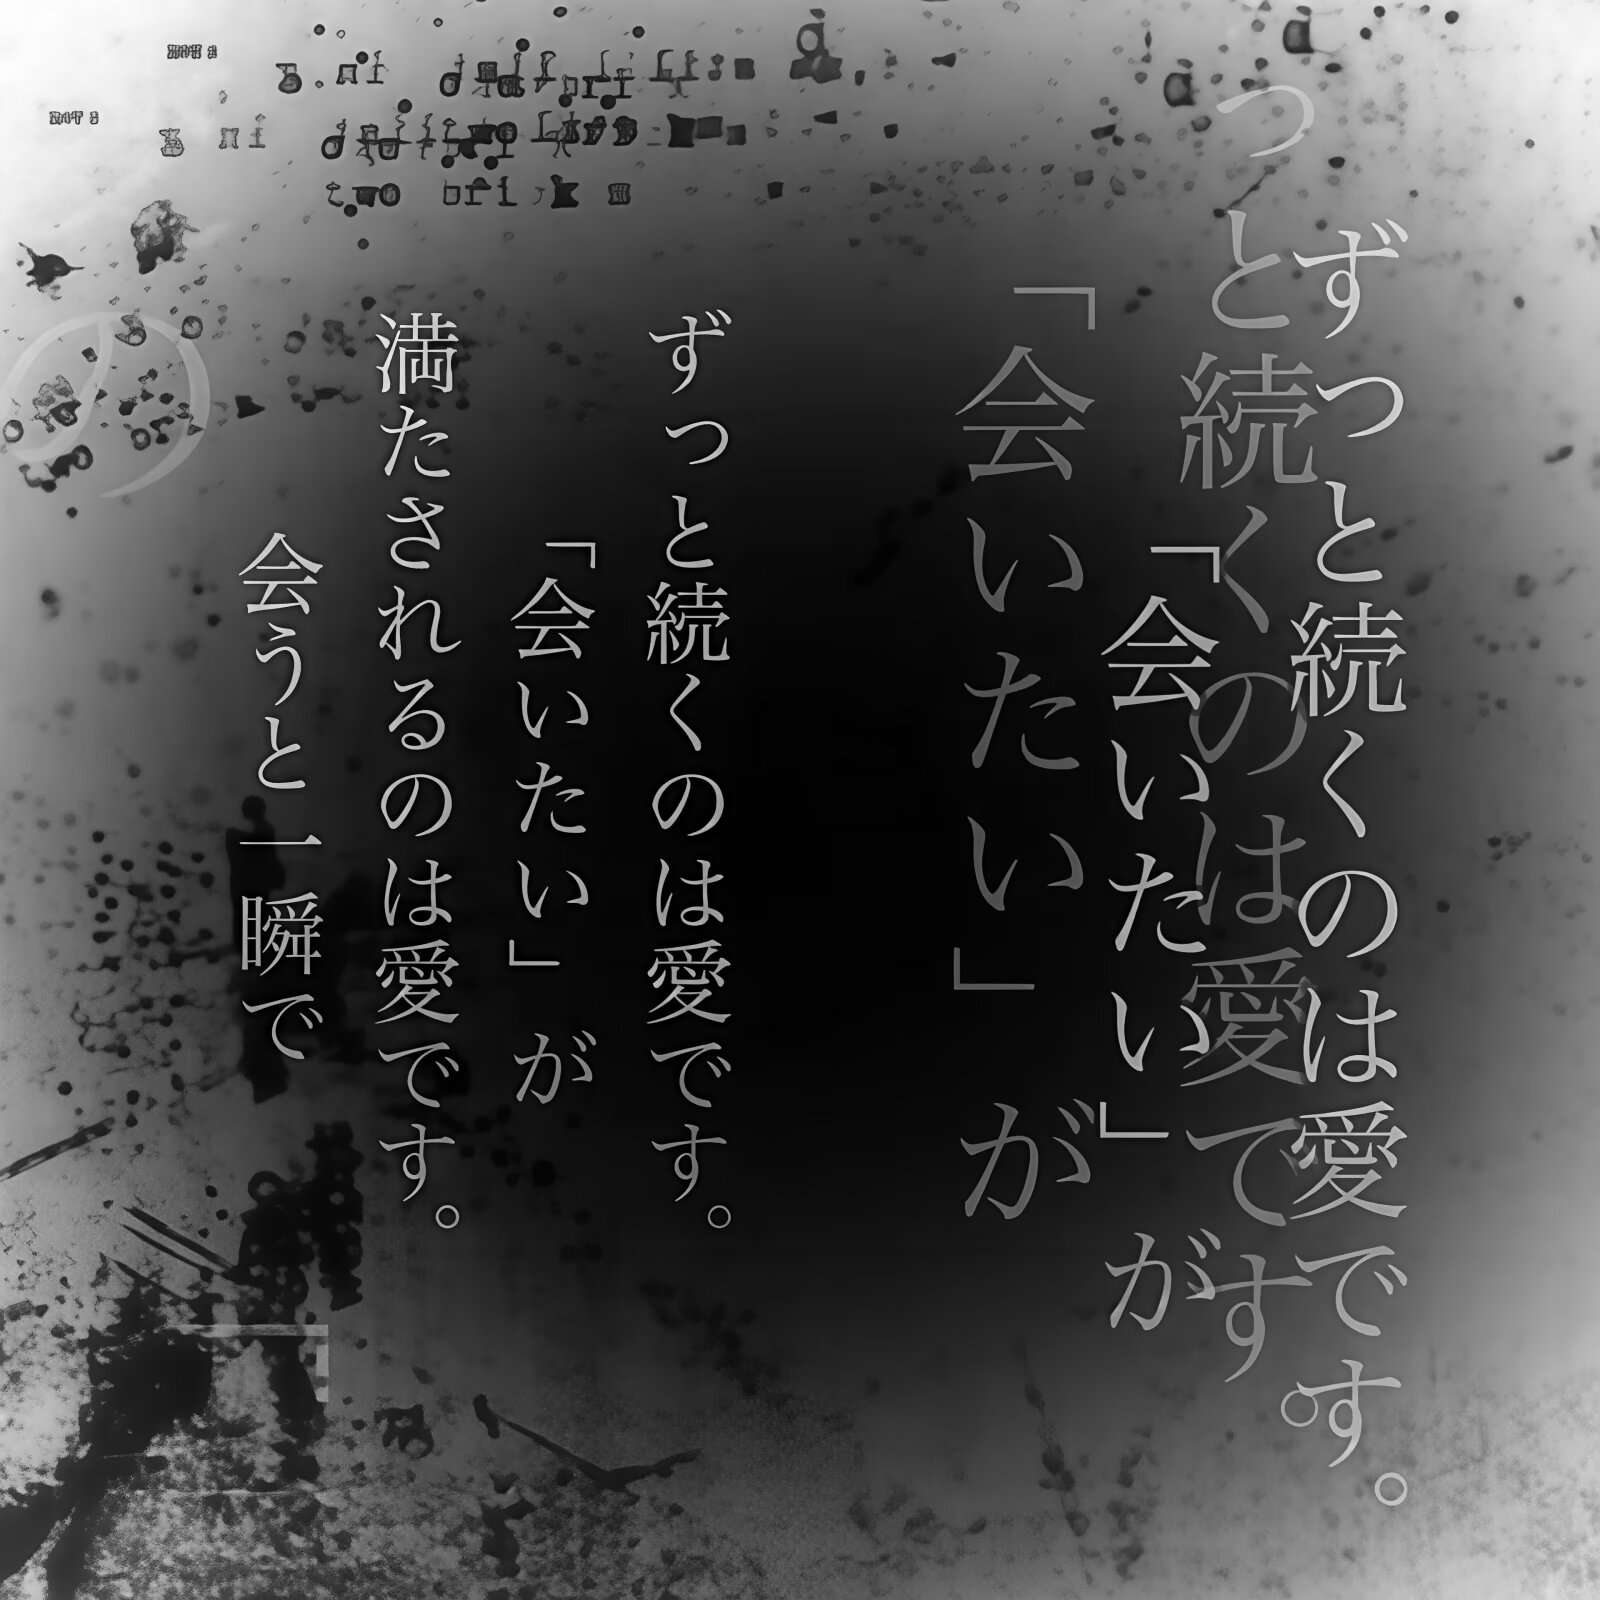 ずっと続くのは愛です。
っと続くのは愛です。
「会いたい」が
「会いたい」が
ずっと続くのは愛です。
「会いたい」が
満たされるのは愛です。
会うと一瞬で
の